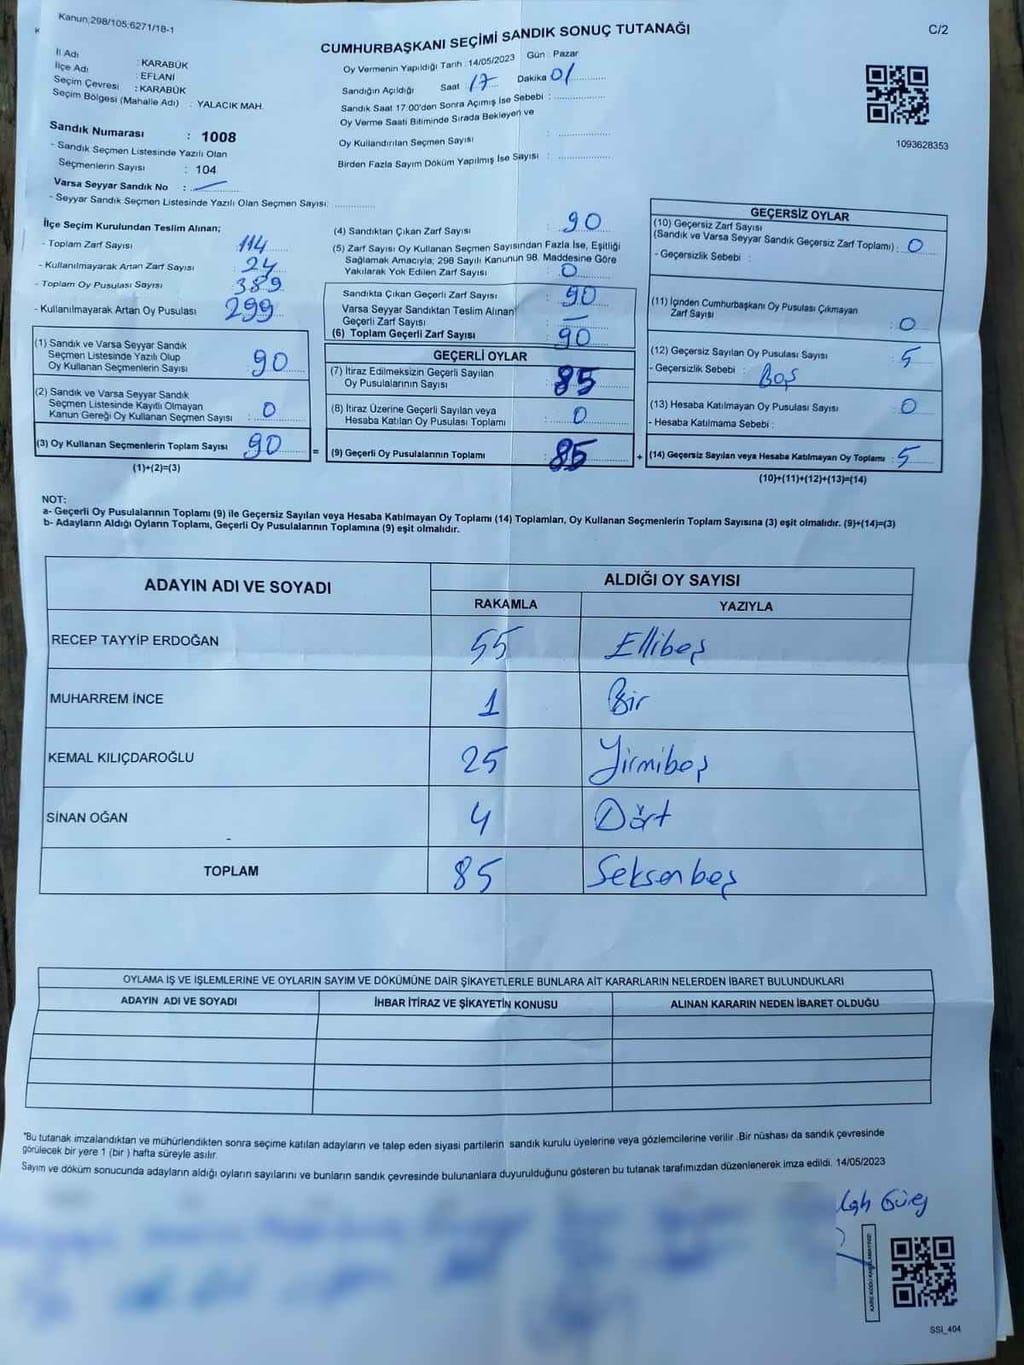 Kanun;298/105;6271/18-1
CUMHURBAŞKANI SEÇİMİ SANDIK SONUÇ TUTANAĞI
C/2
İl Adı : KARABÜK
İlçe Adı : EFLANİ
Seçim Çevresi : KARABÜK
Seçim Bölgesi (Mahalle Adı) : YALACIK MAH.
Sandık Numarası : 1008
- Sandık Seçmen Listesinde Yazılı Olan
Seçmenlerin Sayısı : 104
Varsa Seyyar Sandık No :
- Seyyar Sandık Seçmen Listesinde Yazılı Olan Seçmen Sayısı:
Oy Vermenin Yapıldığı Tarih : 14/05/2023 Gün : Pazar
Sandığın Açıldığı Saat 17 Dakika 01
Sandık Saat 17.00'den Sonra Açımış İse Sebebi :
Oy Verme Saati Bitiminde Sırada Bekleyen ve
Oy Kullandırılan Seçmen Sayısı :
Birden Fazla Sayım Döküm Yapılmış İse Sayısı :
1093628353
İlçe Seçim Kurulundan Teslim Alınan;
- Toplam Zarf Sayısı : 114
- Kullanılmayarak Artan Zarf Sayısı : 24
- Toplam Oy Pusulası Sayısı : 389
- Kullanılmayarak Artan Oy Pusulası : 299
(1) Sandık ve Varsa Seyyar Sandık
Seçmen Listesinde Yazılı Olup
Oy Kullanan Seçmenlerin Sayısı : 90
(2) Sandık ve Varsa Seyyar Sandık
Seçmen Listesinde Kayıtlı Olmayan
Kanun Gereği Oy Kullanan Seçmen Sayısı : 0
(3) Oy Kullanan Seçmenlerin Toplam Sayısı : 90
(1)+(2)=(3)
=
(4) Sandıktan Çıkan Zarf Sayısı : 90
(5) Zarf Sayısı Oy Kullanan Seçmen Sayısından Fazla İse, Eşitliği
Sağlamak Amacıyla; 298 Sayılı Kanunun 98. Maddesine Göre
Yakılarak Yok Edilen Zarf Sayısı : 0
Sandıkta Çıkan Geçerli Zarf Sayısı : 90
Varsa Seyyar Sandıktan Teslim Alınan
Geçerli Zarf Sayısı : –
(6) Toplam Geçerli Zarf Sayısı : 90
GEÇERLİ OYLAR
(7) İtiraz Edilmeksizin Geçerli Sayılan
Oy Pusulalarının Sayısı : 85
(8) İtiraz Üzerine Geçerli Sayılan veya
Hesaba Katılan Oy Pusulası Toplamı : 0
(9) Geçerli Oy Pusulalarının Toplamı : 85
+
GEÇERSİZ OYLAR
(10) Geçersiz Zarf Sayısı
(Sandık ve Varsa Seyyar Sandık Geçersiz Zarf Toplamı) : 0
- Geçersizlik Sebebi :
(11) İçinden Cumhurbaşkanı Oy Pusulası Çıkmayan
Zarf Sayısı : 0
(12) Geçersiz Sayılan Oy Pusulası Sayısı : 5
- Geçersizlik Sebebi : Boş
(13) Hesaba Katılmayan Oy Pusulası Sayısı : 0
- Hesaba Katılmama Sebebi :
(14) Geçersiz Sayılan veya Hesaba Katılmayan Oy Toplamı : 5
(10)+(11)+(12)+(13)=(14)
NOT:
a- Geçerli Oy Pusulalarının Toplamı (9) ile Geçersiz Sayılan veya Hesaba Katılmayan Oy Toplamı (14) Toplamları, Oy Kullanan Seçmenlerin Toplam Sayısına (3) eşit olmalıdır. (9)+(14)=(3)
b- Adayların Aldığı Oyların Toplamı, Geçerli Oy Pusulalarının Toplamına (9) eşit olmalıdır.
ADAYIN ADI VE SOYADI ALDIĞI OY SAYISI
RAKAMLA YAZIYLA
RECEP TAYYİP ERDOĞAN 55 Ellibeş
MUHARREM İNCE 1 Bir
KEMAL KILIÇDAROĞLU 25 Yirmibeş
SİNAN OĞAN 4 Dört
TOPLAM 85 Seksenbeş
OYLAMA İŞ VE İŞLEMLERİNE VE OYLARIN SAYIM VE DÖKÜMÜNE DAİR ŞİKAYETLERLE BUNLARA AİT KARARLARIN NELERDEN İBARET BULUNDUKLARI
ADAYIN ADI VE SOYADI İHBAR İTİRAZ VE ŞİKAYETİN KONUSU ALINAN KARARIN NEDEN İBARET OLDUĞU
"Bu tutanak imzalandıktan ve mühürlendikten sonra seçime katılan adayların ve talep eden siyasi partilerin sandık kurulu üyelerine veya gözlemcilerine verilir .Bir nüshası da sandık çevresinde
görülecek bir yere 1 (bir ) hafta süreyle asılır.
Sayım ve döküm sonucunda adayların aldığı oyların sayılarını ve bunların sandık çevresinde bulunanlara duyurulduğunu gösteren bu tutanak tarafımızdan düzenlenerek imza edildi. 14/05/2023
SSI_404